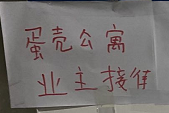 蛋壳公寓
业主接待